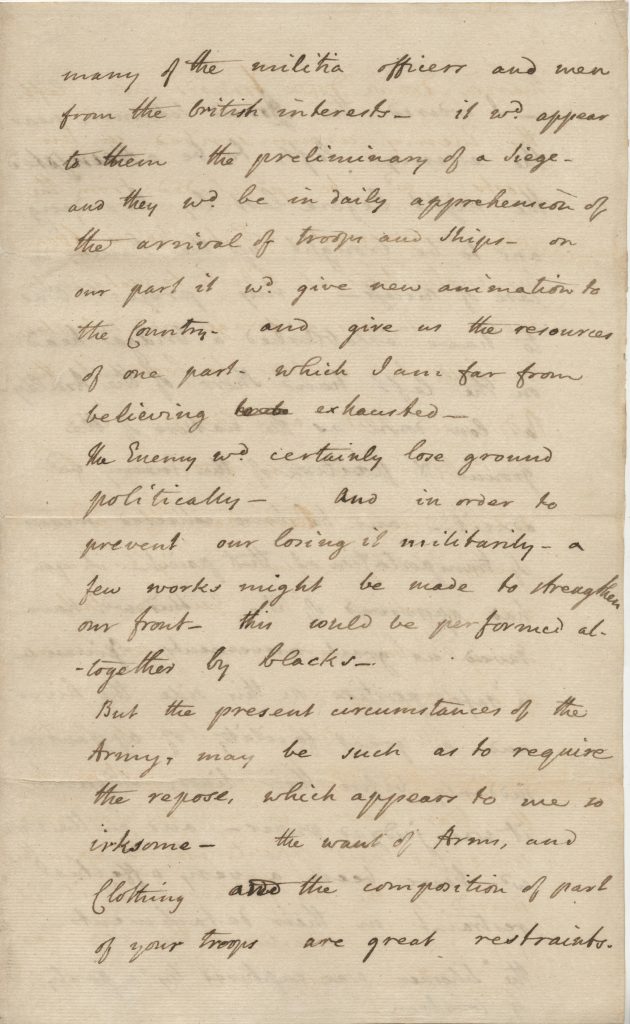 many of the militia officers and men
from the british interests— it wd. appear
to them the preliminary of a siege—
and they wd. be in daily apprehension of
the arrival of troops and ships— on
our part it wd. give new animation to
the Country— and give us the resources
of one part— which I am far from
believing exhausted—
the Enemy wd. certainly lose ground
politically— and in order to
prevent our losing it militarily— a
few works might be made to streagthen
our front— this would be performed al-
-together by blacks—.
But the present circumstances of the
Army, may be such as to require
the repose, which appears to me so
irksome— the want of Arms, and
Clothing and the composition of part
of your troops are great restraints.